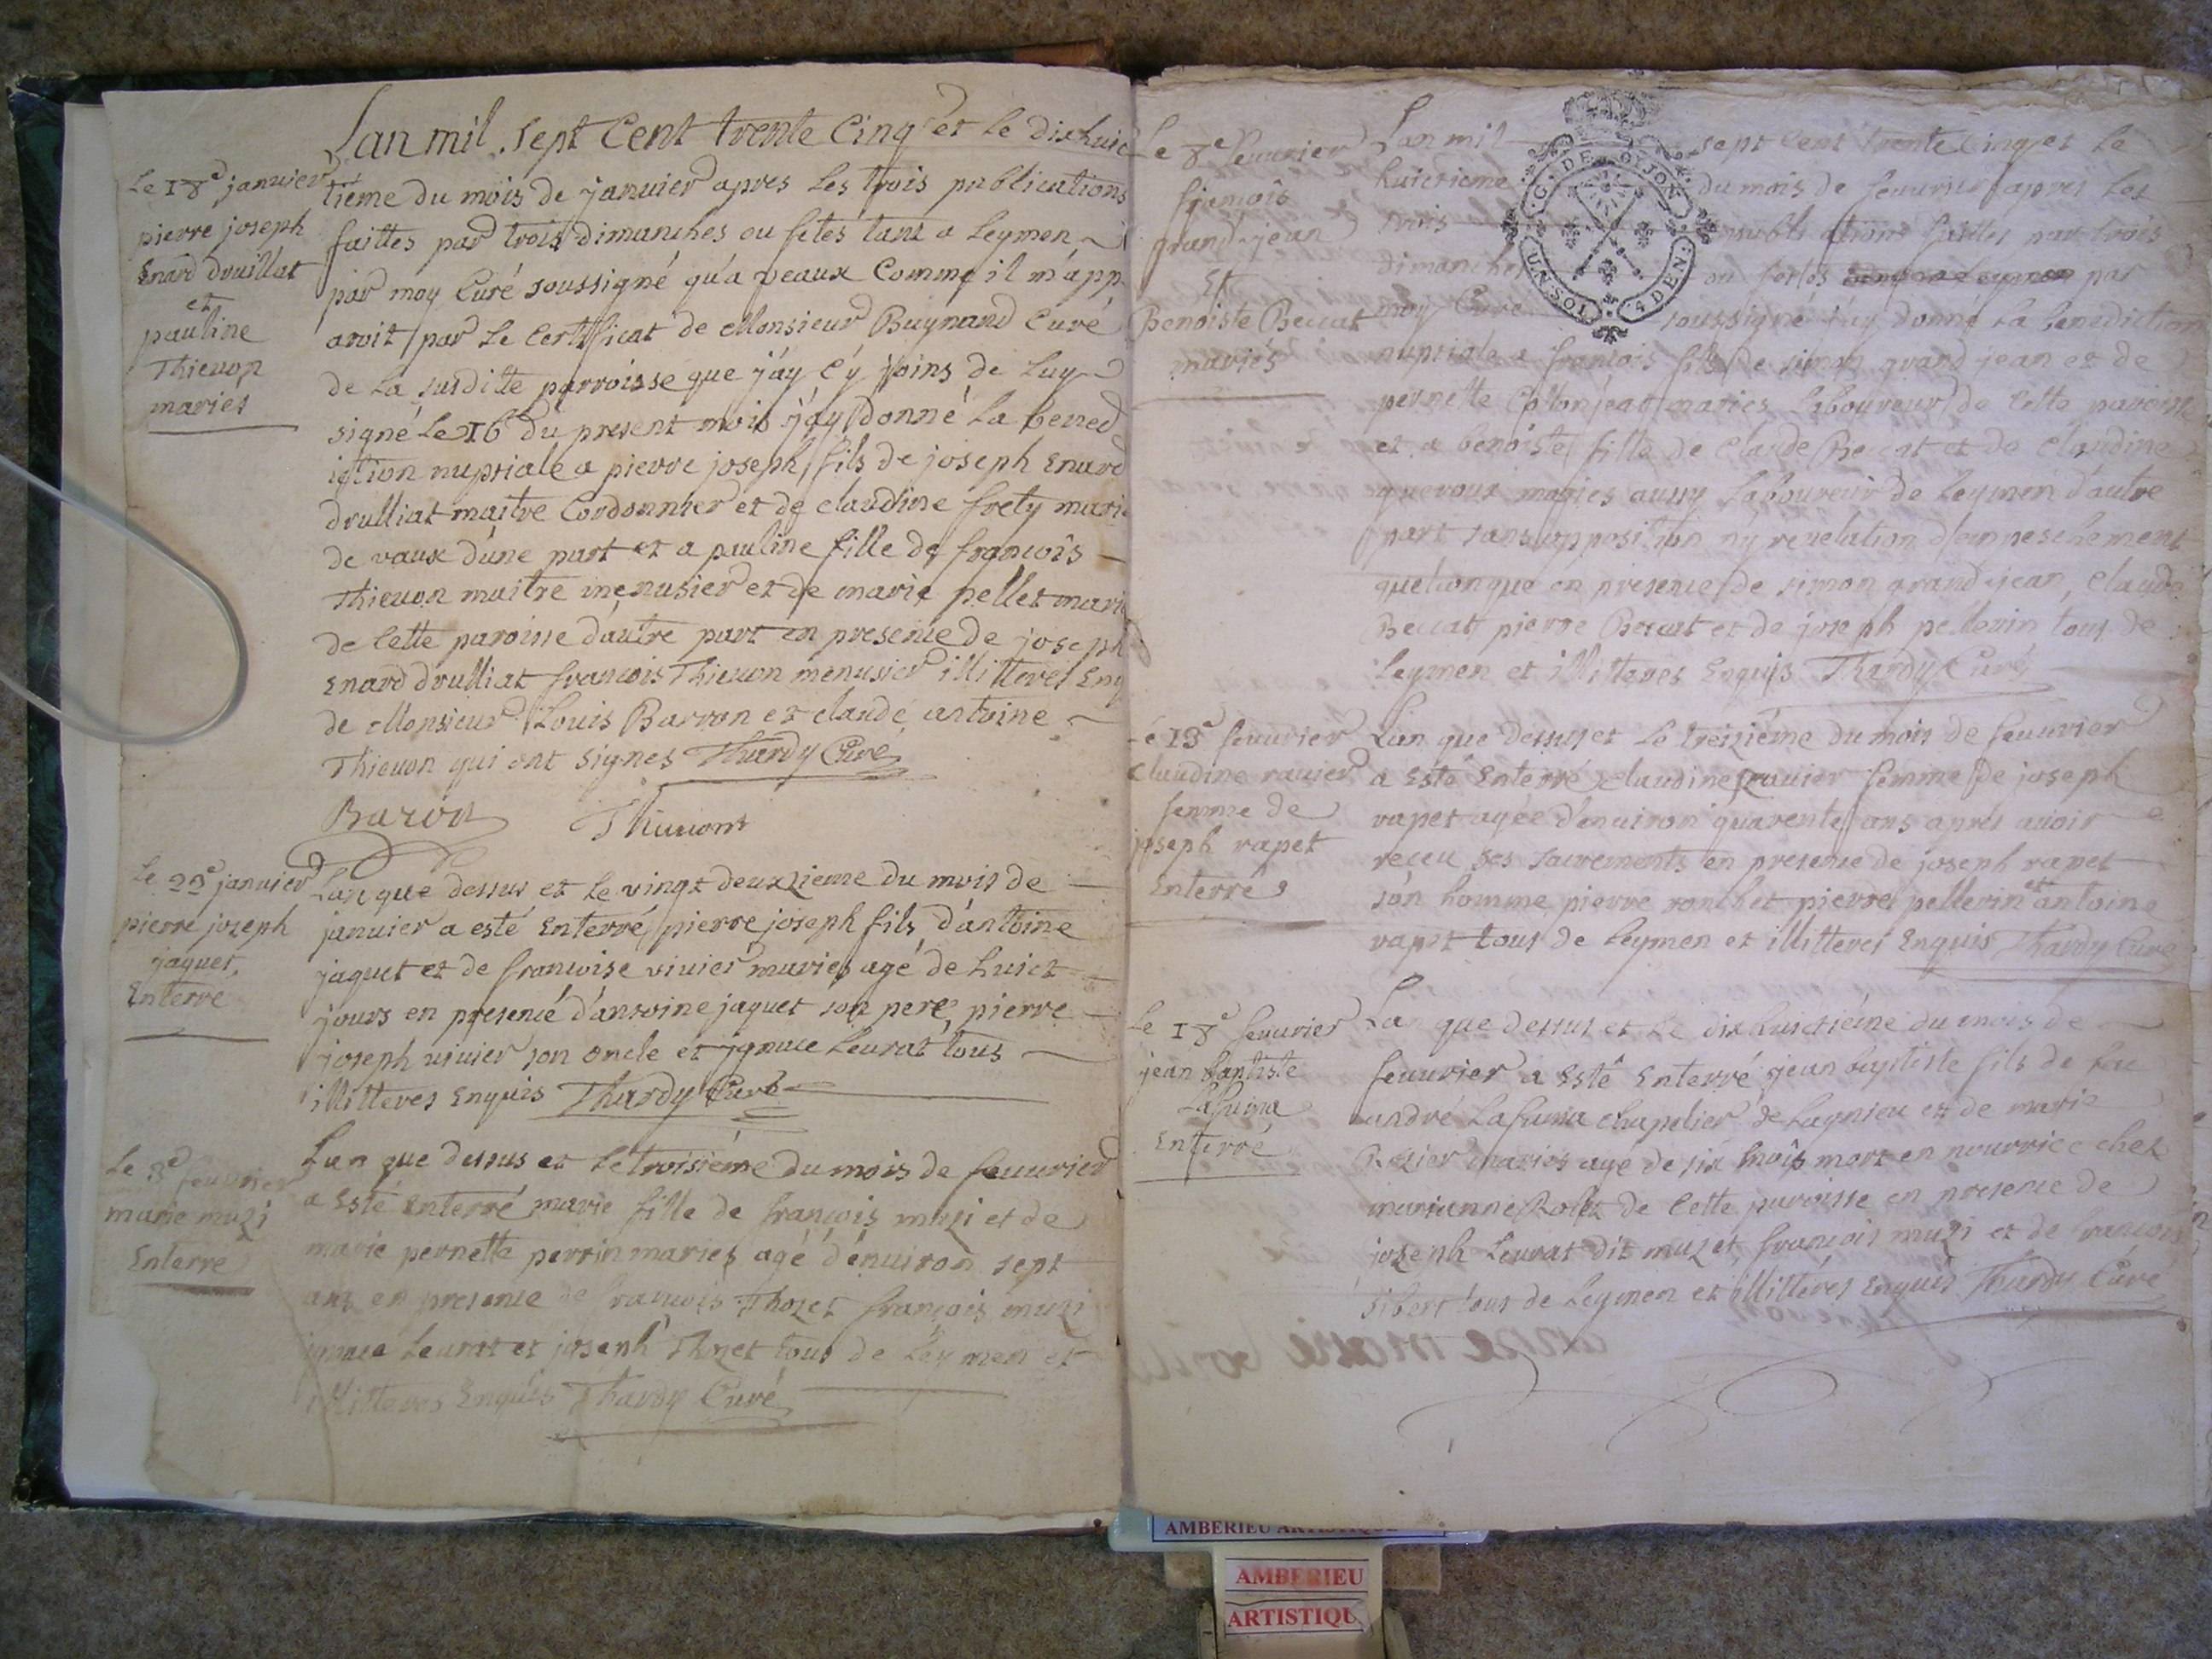 Le 18e janvier
pierre joseph
Enard druillat
et
pauline
Thievon
mariés
Lan mil sept Cent trente Cinq et le dixhuic
tieme du mois de janvier apres les trois publications
faittes par trois dimanches ou fetes tant a Leymen
par moy Curé soussigné qu'a veaux Comme il m'app
aroit par le Certificat de Monsieur Buynand Curé
de la susditte parroisse que j'ay cy joins de luy
signé le 16 du present mois j'ay donné la bened
iction nuptiale a pierre joseph fils de joseph Enard
drulliat maitre Cordonnier et de claudine frety marié
de vaux d'une part et a pauline fille de francois
Thievon maitre menusier et de marie pellet marié
de Cette paroisse d'autre part en presence de joseph
Enard drulliat francois Thievon menusier illitterés Enq
de Monsieur Louis Barron et claude antoine
Thievon qui ont signés Thardy Curé
Baron Thievont
Le 22e janvier
pierre joseph
jaquet
Enterré
Lan que dessus et le vingt deuxzieme du mois de
janvier a esté Enterré pierre joseph fils d'antoine
jaquet et de francoise vivier mariés agé de huict
jours en presence d'antoine jaquet son pere, pierre
joseph vivier son oncle et ygnace Leurat tous
illitterés Enquis Thardy Curé
Le 3e feuvrier
marie muzi
Enterré
Lan que dessus et le troisiéme du mois de feuvrier
a Esté Enterré marie fille de françois muzi et de
marie pernette perrin mariés agé d'enuiron sept
ans en presence de françois Thozet françois muzi
ignace Leurat et joseph Thozet tous de Leymen et
illitteres Enquis Thardy Curé
Le 8e feuvrier
françois
grand-jean
Et
Benoiste Beccat
mariés
Lan mil sept Cent trente Cinq et le
huictieme du mois de feuvrier apres les
trois publications faittes par trois
dimanches ou festes par
moy Curé soussigné j'ay donné la benediction
nuptiale a francois fils de simon grand jean et de
pernette Collonjeat mariés Laboureur de Cette paroisse
et a benoiste fille de Claude Beccat et de Claudine
mariés aussy Laboureur de Leymen d'autre
part sans opposition ny revelation d'empeschement
quelconque en presence de simon grand-jean, Claude
Beccat, pierre Beccat et de joseph pellerin tous de
Leymen et illitteres Enquis Thardy Curé
G. DE DIJON
UN SOL 4 DEN
Le 13e feuvrier
Claudine ravier
femme de
joseph rapet
Enterré
Lan que dessus et le treizième du mois de feuvrier
a Esté Enterré claudine ravier femme de joseph
rapet agée d'enuiron quarente ans après avoir
reçeu ses sacrements en presence de joseph rapet
son homme pierre ronchet pierre pellerin et antoine
rapet tous de Leymen et illitteres Enquis Thardy Curé
Le 18e feuvrier
jean baptiste
Lafuma
Enterré
Lan que dessus et le dixhuictiéme du mois de
feuvrier a Esté Enterré jean baptiste fils de feu
andré Lafuma chapelier de Lagnieu et de marie
Rozier mariés agé de six mois mort en nourrice chez
marianne Rolet de Cette paroisse en presence de
joseph Leurat dit muzet, françois muzi et de francois
sibert tous de Leymen et illitteres Enquis Thardy Curé
AMBERIEU ARTISTIQUE
AMBERIEU
ARTISTIQU